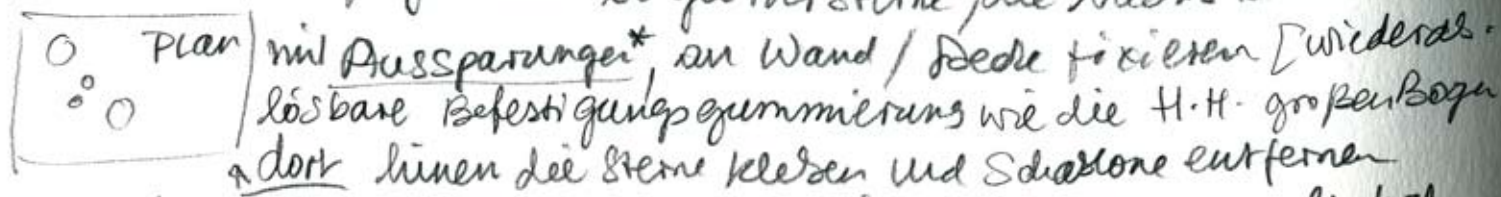 Plan mit Aussparungen*, an Wand / Decke fixieren [wiederab-
lösbare Befestigungsgummierung wie die H.H. großen Bogen
dort hinein die Sterne kleben und Schablone entfernen